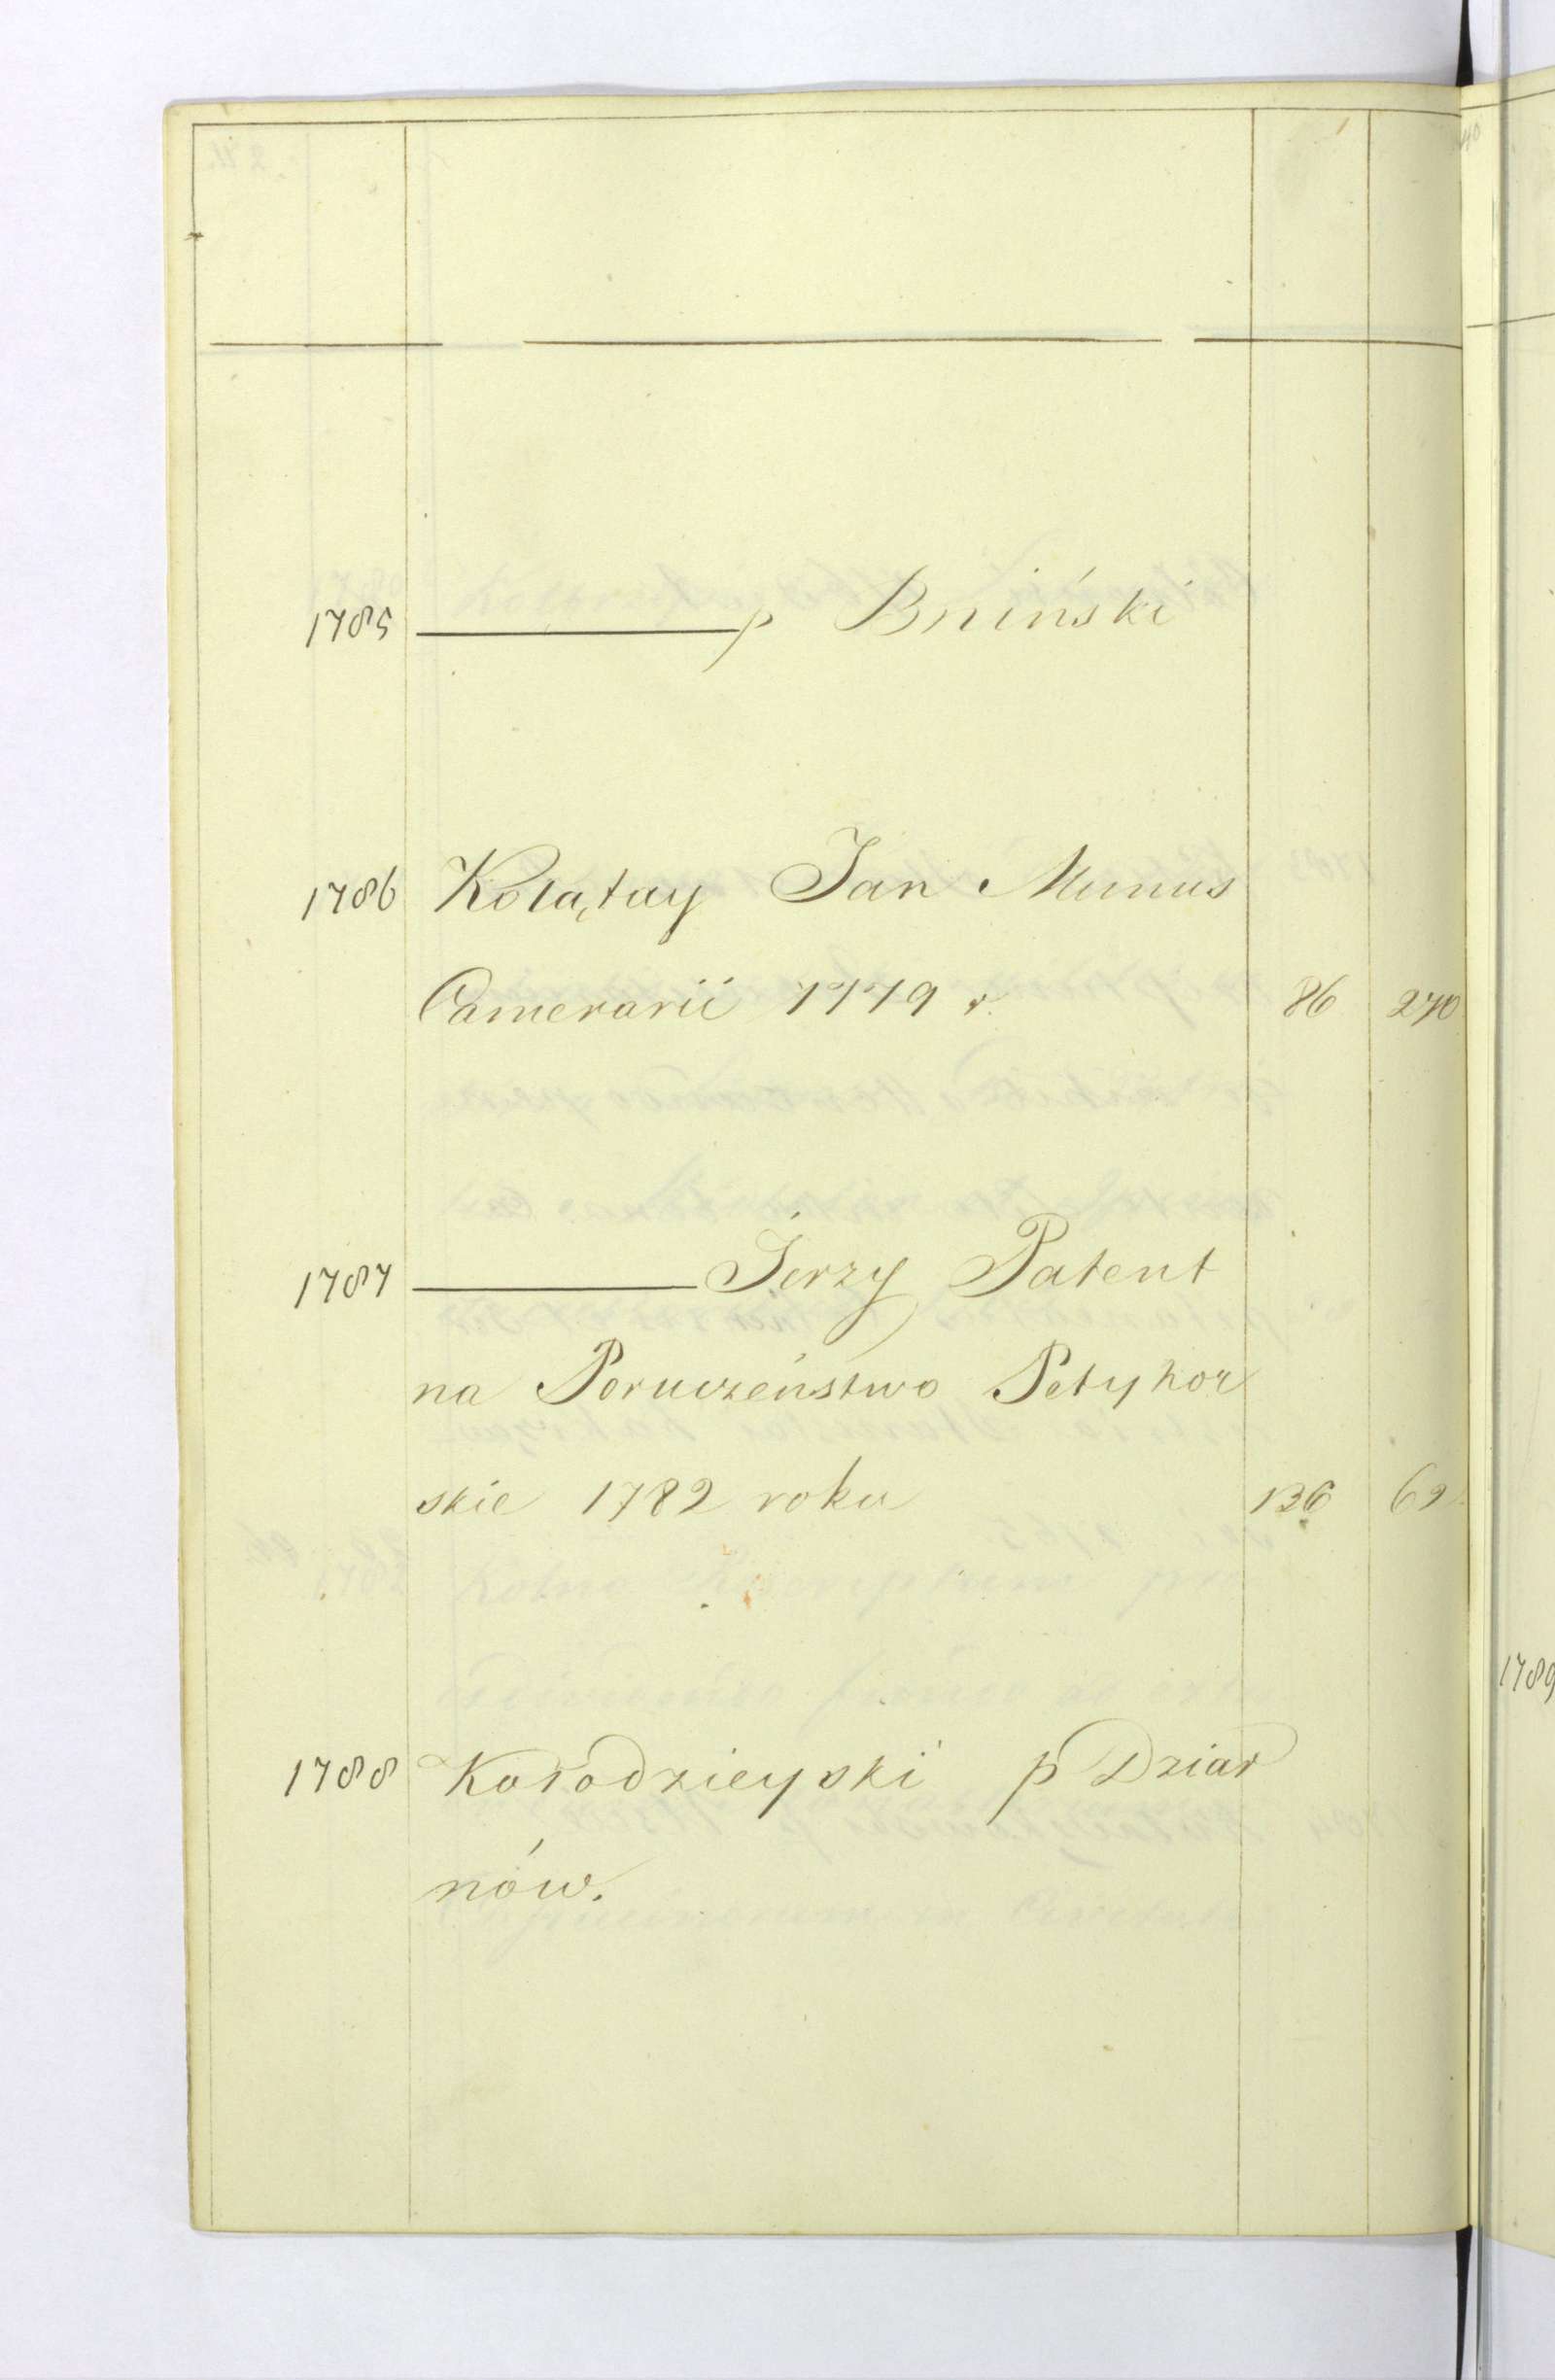 1785 ——— p Bniński
1786 Kołątay Jan Munus
Camerarii 1779 r. 86 270
1787 ——— Jerzy Patent
na Poruczeństwo Petyhor
skie 1782 roku 136 69
1789
1788 Kołodzieyski p Dziar
nów.